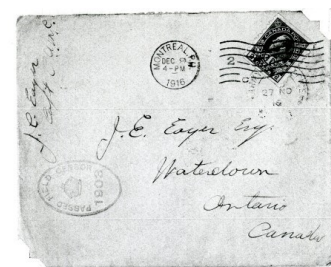 J. C. Eager
MONTREAL, P.Q.
DEC
4-PM
1916
2
CANADA
27 NO
16
J. E. Eager Esq.
Waterdown
Ontario
Canada
PASSED FIELD CENSOR
1903